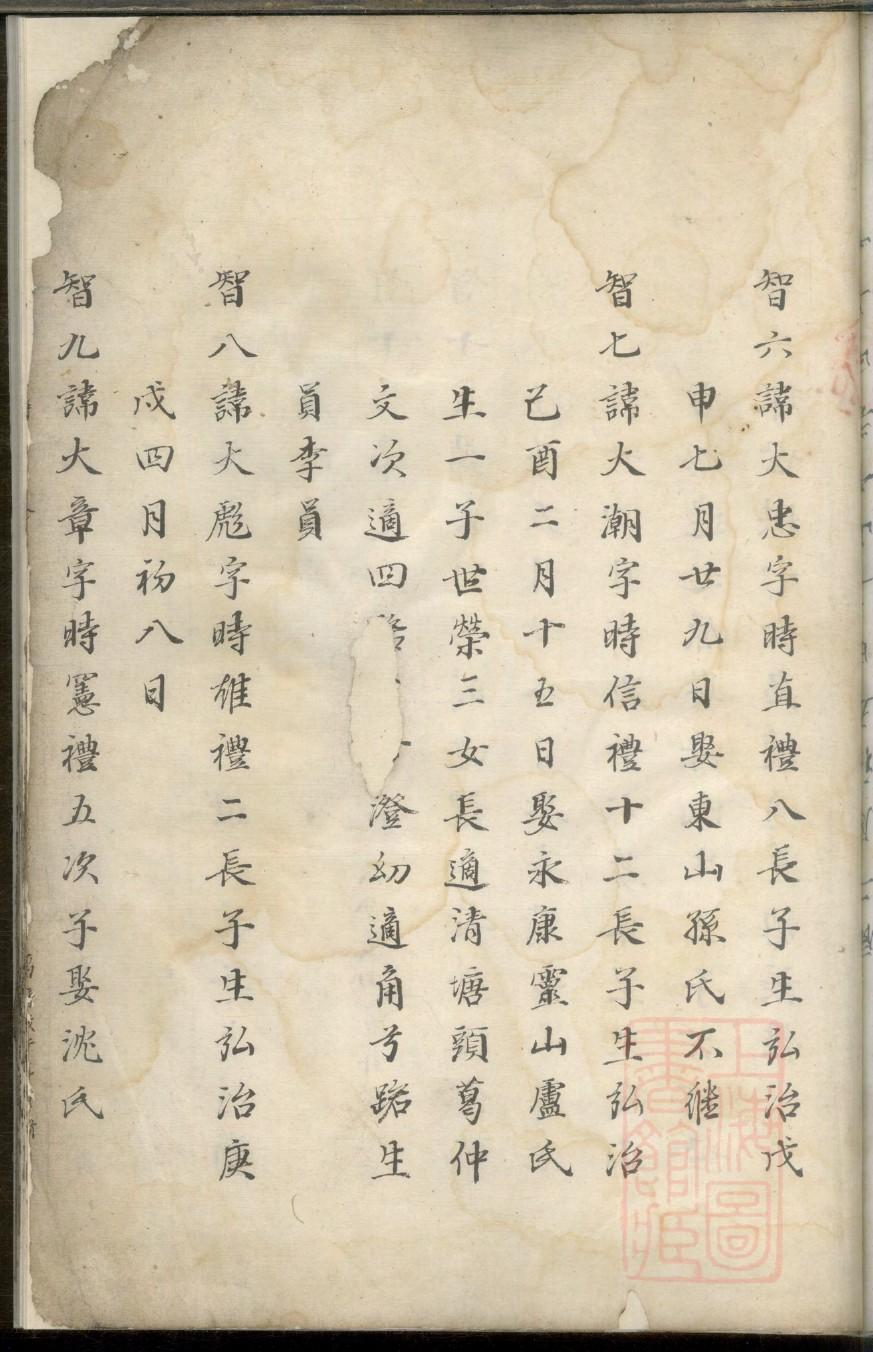 智六諱大忠字時直禮八長子生弘治戊
申七月廿九日娶東山孫氏不継
智七諱大潮字時信禮十二長子生弘治
己酉二月十五日娶永康靈山盧氏
生一子世榮三女長適清塘頭葛仲
文次適四澄幼適角兮踞生
員李員
智八諱大彪字時雄禮二長子生弘治庚
戍四月初八日
智九諱大章字時憲禮五次子娶沈氏
上海圖
書館藏